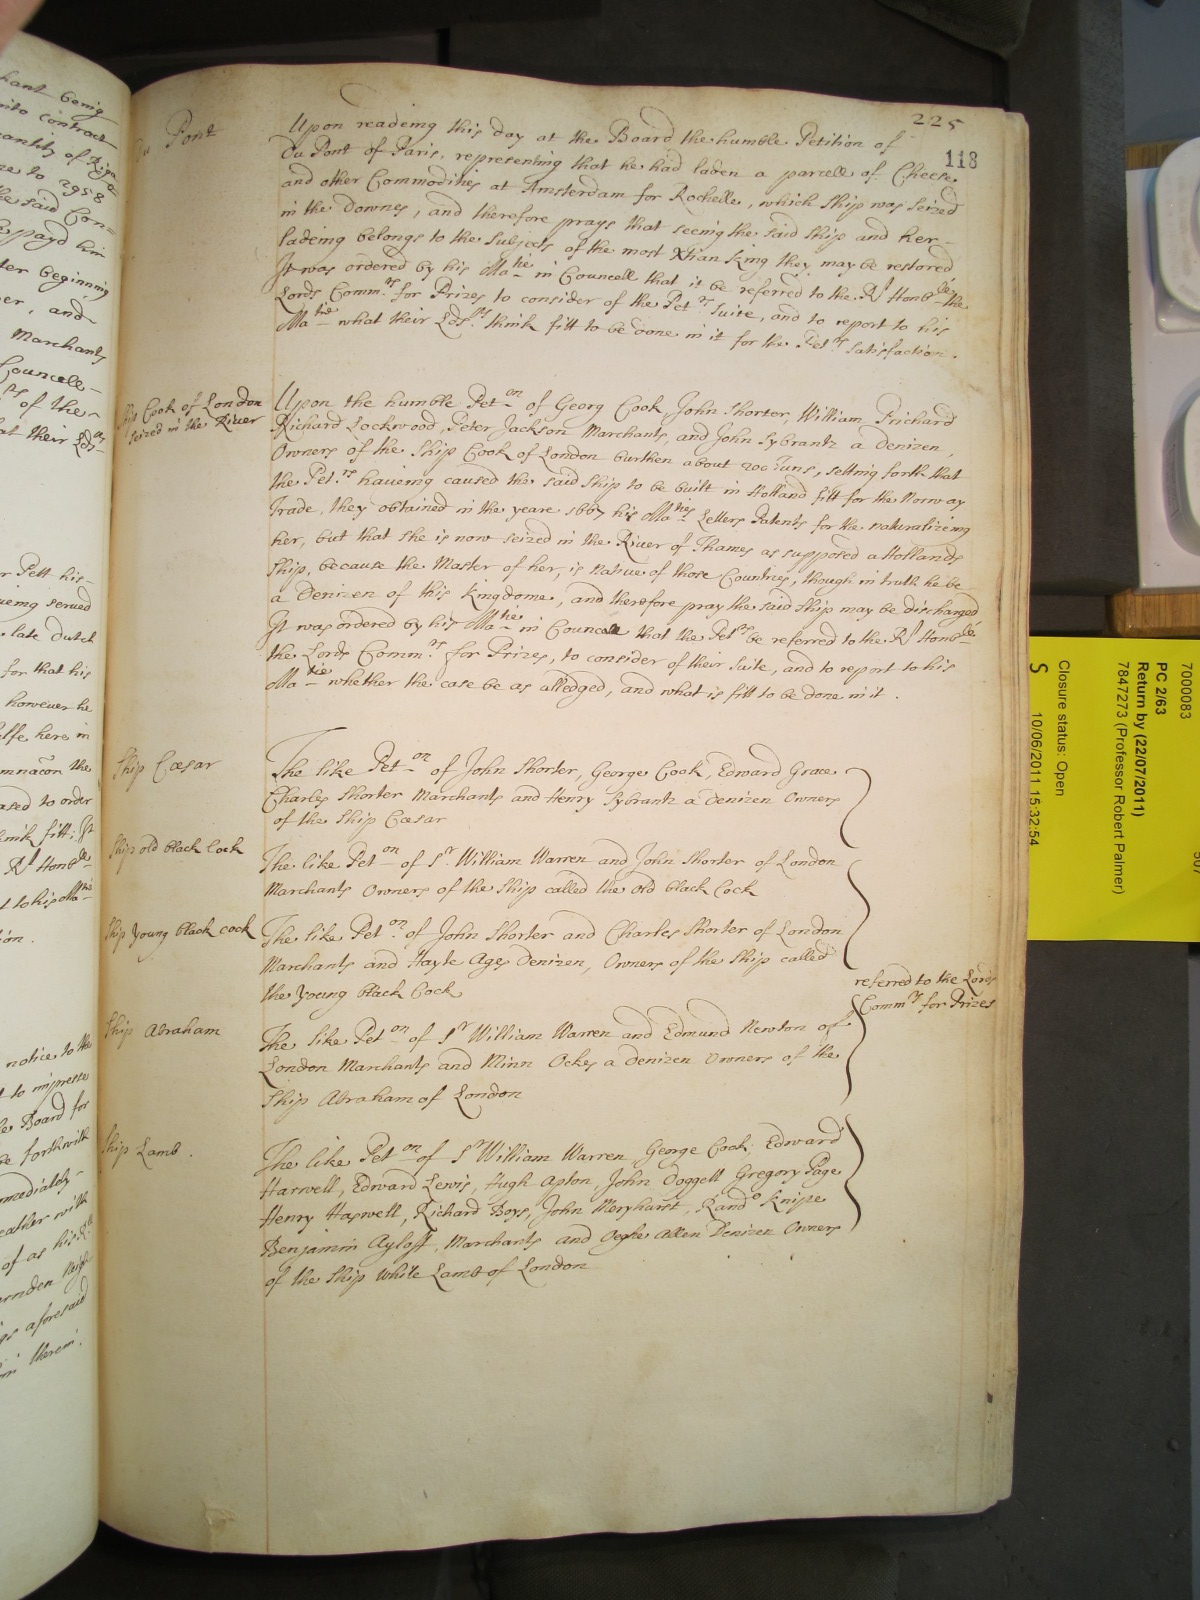 hant being
into contract
antity of Riga
ne to 2958
the said Corn=
payd him
ter beginning
er, and
Marchants
Councell
rs of the
at their Lds
r Pett his
ueing serued
late dutch
for that his
however he
elfe here in
mnacon the
ased to order
hink fitt; It
Rt Honble
t to his Matie
ion.
notice to the
t to impresse
e Board for
be forthwith
mediately
eather with
of as his
gs aforesaid
therein.
225
118
du Pont
Upon readeing this day at the Board the humble Petition of
du Pont of Paris, representing that he had laden a parcell of Cheese
and other Commodities at Amsterdam for Rochelle, which ship was seized
in the Downes, and therefore prays that seeing the said ship and her
ladeing belongs to the Subjects of the most Xtian King they may be restored
It was ordered by his Matie in Councell that it be referred to the Rt Honble the
Lords Commrs for Prizes to consider of the Petrs Suite, and to report to his
Matie what their Ldsps think fitt to be done in it for the Petrs satisfaction.
Ship Cook of London
seized in the River
Upon the humble Peton of Georg Cook, John Shorter, William Prichard
Richard Lockwood, Peter Jackson Marchants, and John Sybrantz a Denizen,
Owners of the Ship Cook of London burthen about 200 Tuns, setting forth that
the Petrs haueing caused the said Ship to be built in Holland fitt for the Norway
Trade, they obtained in the yeare 1667 his Maties Letters Patents for the naturalizeing
her, but that she is now seized in the River of Thames as supposed a Hollands
Ship, because the Master of her, is natiue of those Countries, though in truth he be
a Denizen of this Kingdome, and therefore pray the said ship may be discharged
It was ordered by his Matie in Councell that the Petrs be referred to the Rt Honble
the Lords Commrs for Prizes, to consider of their Suite, and to report to his
Matie whether the case be as alledged, and what is fitt to be done in it.
Ship Cæsar
The like Peton of John Shorter, George Cook, Edward Grace
Charles Shorter Marchants and Henry Sybrantz a Denizen Owners
of the Ship Cæsar
Ship old black Cock
The like Peton of Sr William Warren and John Shorter of London
Marchants Owners of the Ship called the old black Cock
Ship Young black cock
The like Peton of John Shorter and Charles Shorter of London
Marchants and Hayle Ages Denizen, Owners of the Ship called
the Young black Cock
referred to the Lords
Commrs for Prizes
Ship Abraham
The like Peton of Sr William Warren and Edmund Newton of
London Marchants and Minn Ockes a Denizen Owners of the
Ship Abraham of London
Ship Lamb.
The like Peton of Sr William Warren, George Cook, Edward
Harwell, Edward Lewis, Hugh Apton, John Doggell Gregory Page
Henry Haswell, Richard Boys, John Meryhurst, Rando Knipe
Benjamin Ayloff, Marchants and Oghe Allen Denizen Owners
of the Ship white Lamb of London
7000083
PC 2/63
Return by (22/07/2011)
7847273 (Professor Robert Palmer)
Closure status: Open
S 10/06/2011 15:32:54